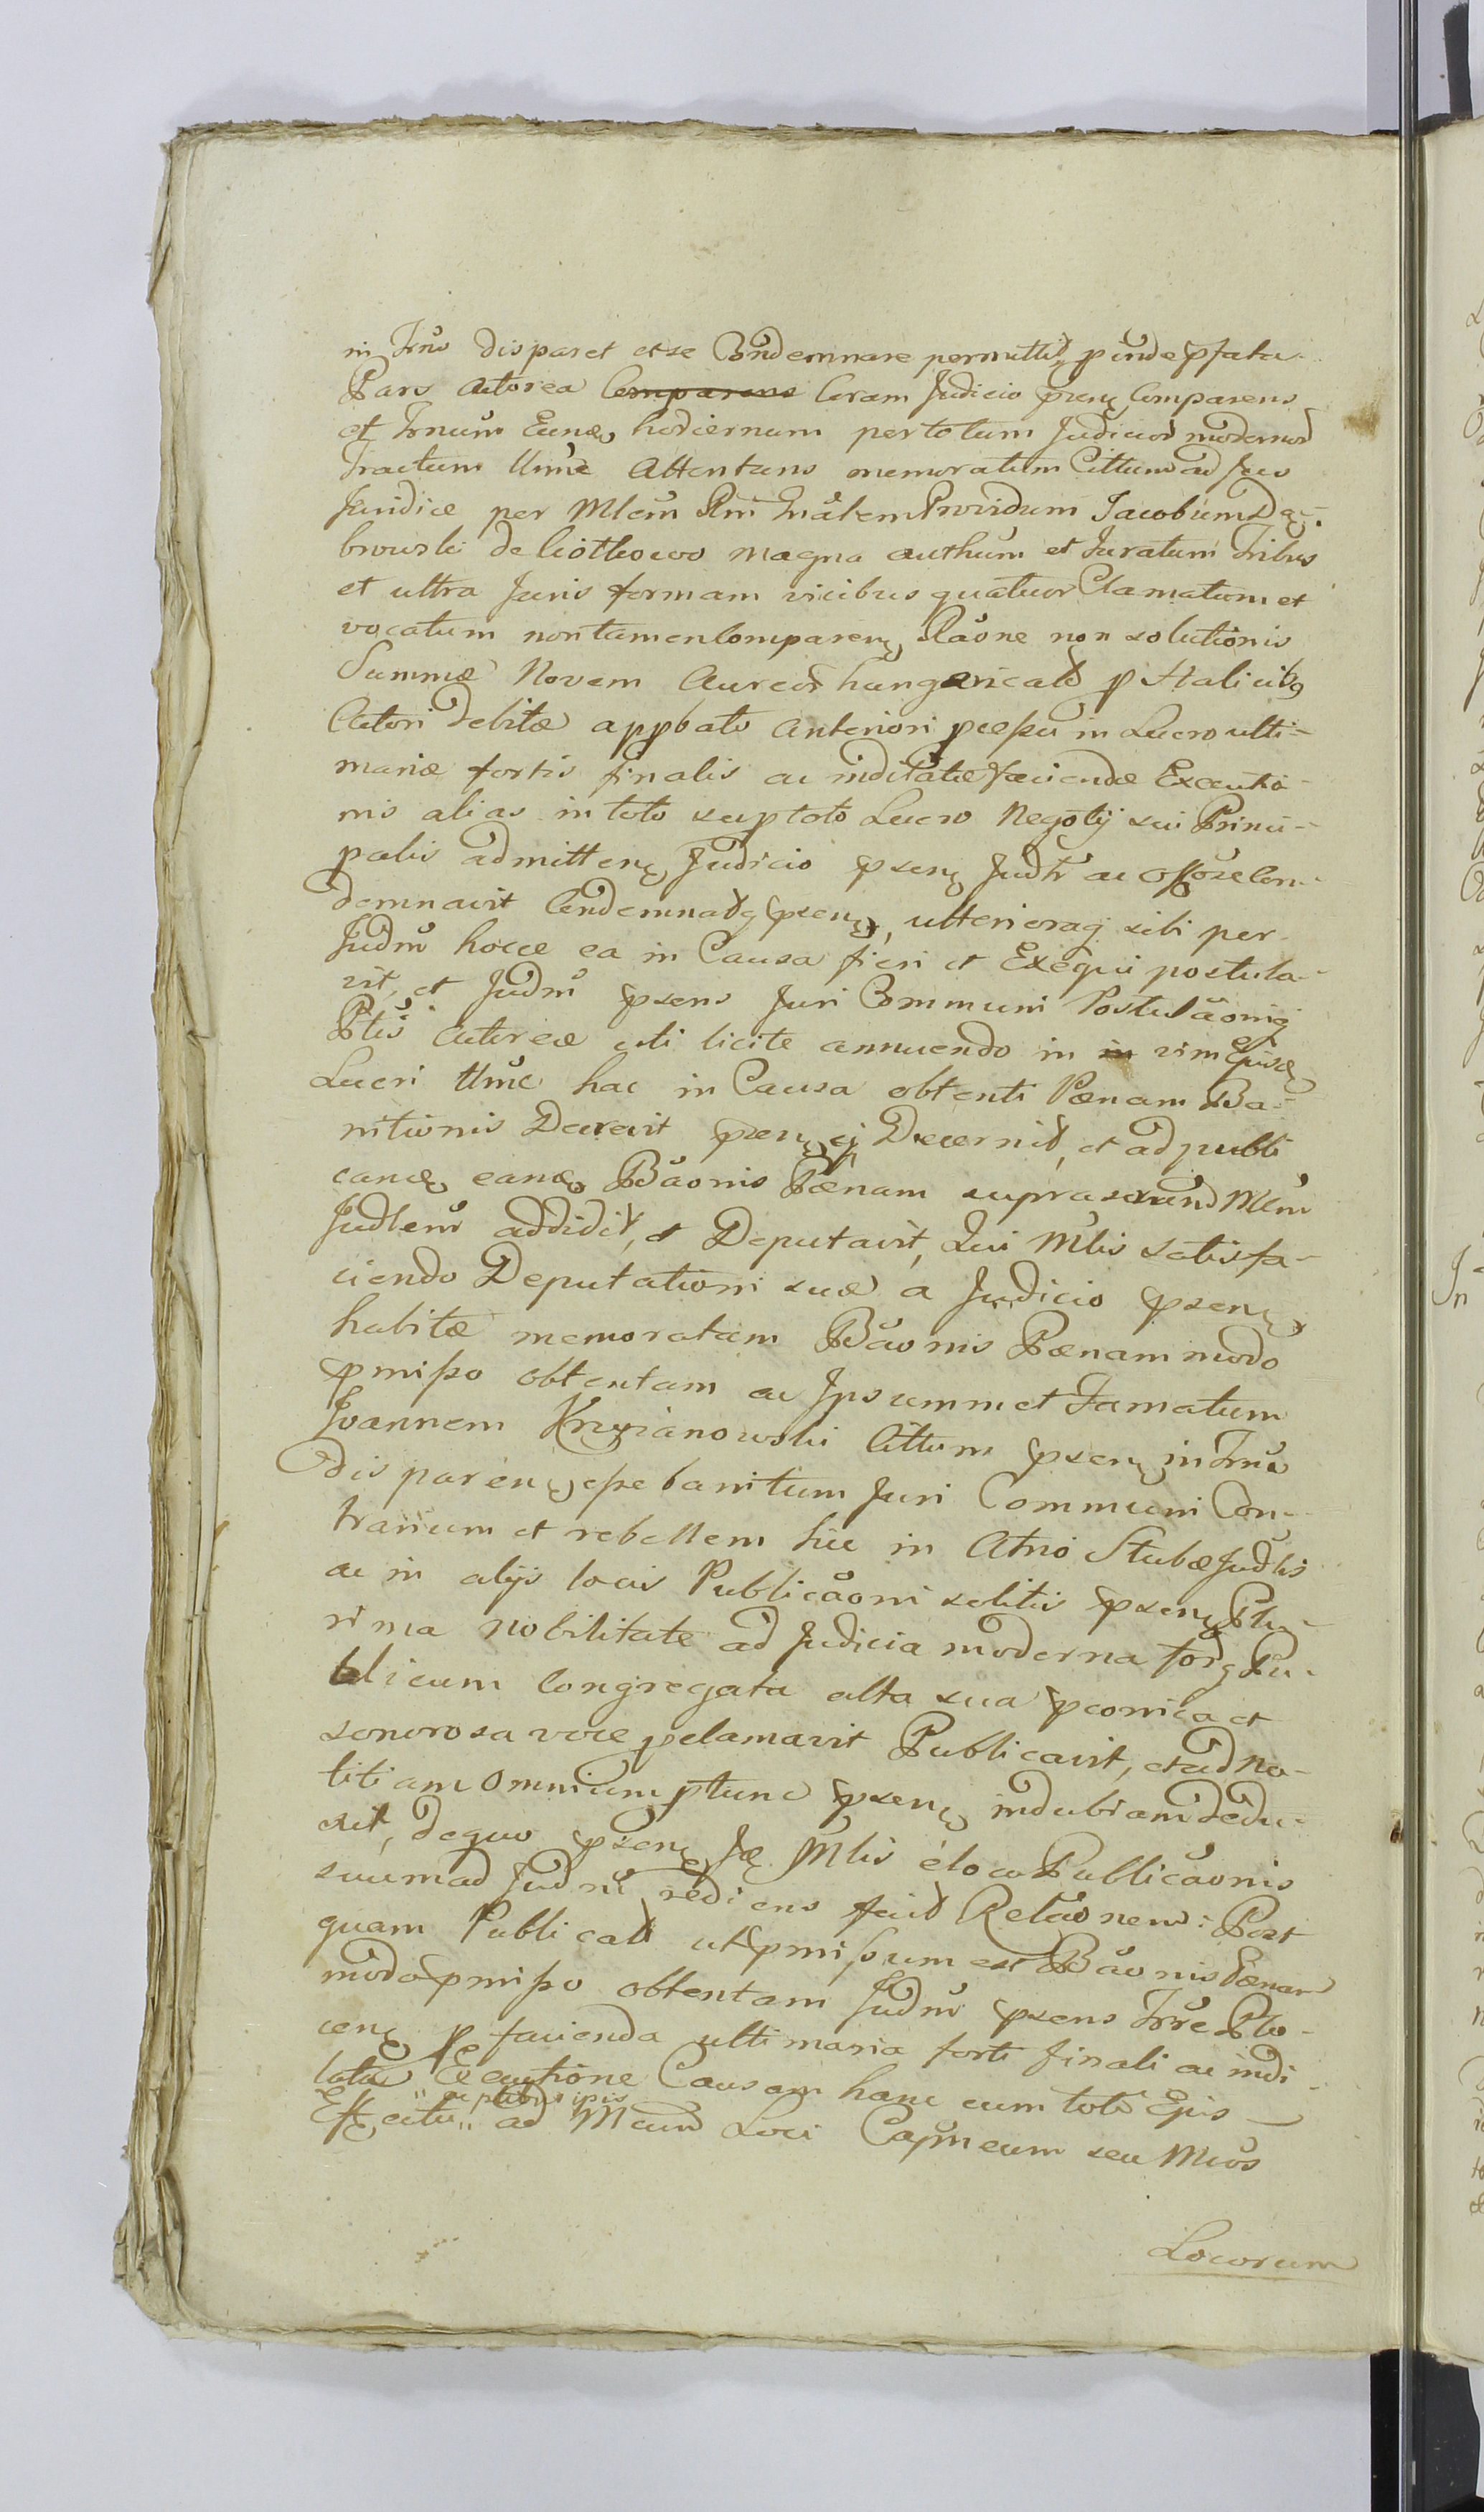 in Trno disparet et se Condemnare permittit, proinde pfata
Pars Actorea Comparens Coram Judicio pnti Comparens
et Trnum Eund. hodiernum per totum Judicior modernor
Tractum Ulme Attentans memoratum Cittum ad fces
Juridice per Mlem Rm Gnalem Providum Jacobum Dą-
browski de Ciothowo magna authum et Juratum Tribus
et ultra Juris formam vicibus quatuor Clamatum et
vocatum non tamen Comparen. Raõne non solutionis
Summæ Novem Aureor hungaricaliũ p Halicibg
Actori debitæ appbato anteriori pcessu in Lucro ulti-
mariæ fortis finalis ac indilatæ faciendæ Executio-
nis alias in toto seu p toto Lucro Negotij sui Princi-
palis admitten. Judicio psen. Judr ac Offõse Con-
demnavit Condemnatq psen., ulterioraq sibi per
Judm hocce ea in Causa fieri et Exequi postula-
vit, et Judm psens Juri Communi Postulãonig
Ptis Actoreæ uti licite annuendo in in vim Ejusd.
Lucri Ulme hac in Causa obtenti Pœnam Ba-
nitionis Decrevit psen.q Decernit, et ad publi
cand. eand. Bãonis Pœnam suprascrund Mlem
Judlem addidit, et Deputavit, Qui Mlis satisfa-
ciendo Deputationi suæ a Judicio psen.
habitæ memoratam Bãonis Pœnam modo
pmisso obtentam ac Ipsummet Famatum
Joannem Krzyzanowski Cittum psen. in Trno
disparen. esse banitum Juri Communi Con-
trarium et rebellem hic in Atrio Stubæ Judlis
ac in alijs locis Publicãoni solitis psen. Plu-
rima nobilitate ad Judicia moderna forq Pu-
blicum Congregata alta sua pconica et
sonorosa voce pclamavit Publicavit, et ad No-
titiam Omnium ptunc psen. indubiam dedu-
xit, dequo psen. Je Mlis e loco Publicãonis
suum ad Judm rediens fecit Relãonem: Post
quam Publicat ut pmissum est Bãonis Pœnam
modo pmisso obtentam Judm psens Trre Plo-
cen. p facienda ultimaria forti finali ac indi-
lata Executione Causam hanc cum toto Ejus
Effectu " ac ptibus ipis " ad Mcum Loci Capneum seu Mcos
Locorum